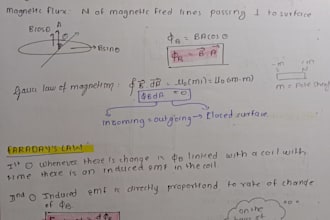 magnetic flux: N of magnetic field lines passing ⊥ to surface
BcosΘ A
BsinΘ
ΦB = BAcosΘ
ΦB = B⃗·A⃗
Gauss law of magnetism: ∮B⃗·dB⃗ = μ0(m) = μ0(m-m)
∮BdA = 0
-m m
m = Pole strength
Incoming = outgoing → Closed surface
FARADAY'S LAW:
Ist Whenever there is change in ΦB linked with a coil with
time there is an induced emf in the coil.
IInd Induced emf is directly proportional to rate of change
of ΦB.
on the